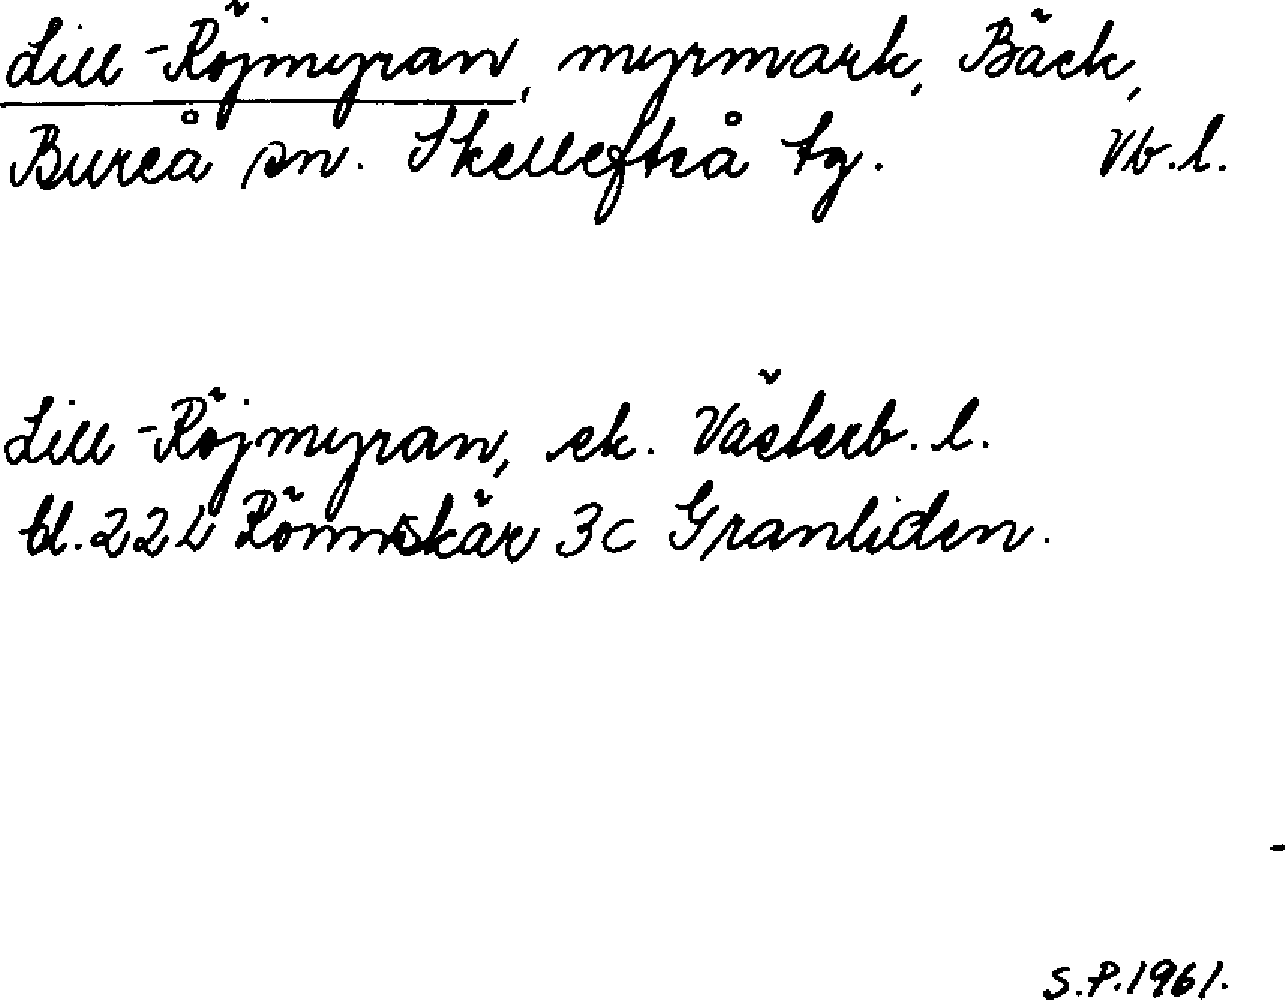 Lill-Röjmyran, myrmark, Bäck,
Bureå sn. Skellefteå tg. Vb. l.
Lill-Röjmyran, ek. Västerb. l.
bl. 22 L Rönnskär 3c Granliden.
S.P. 1961.